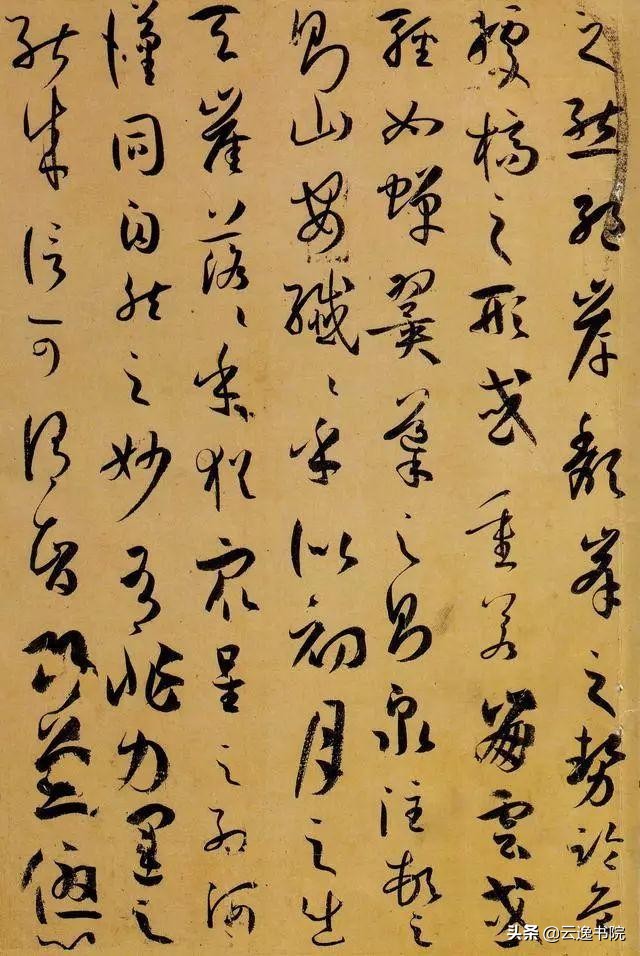 之態絶岸頹峯之勢臨危
據槁之形或重若崩雲或
輕如蟬翼導之則泉注頓之
則山安纖〻乎似初月之出
天崖落〻乎猶衆星之列河
漢同自然之妙有非力運之
能成信可謂智巧兼優心
头条 @云逸书院